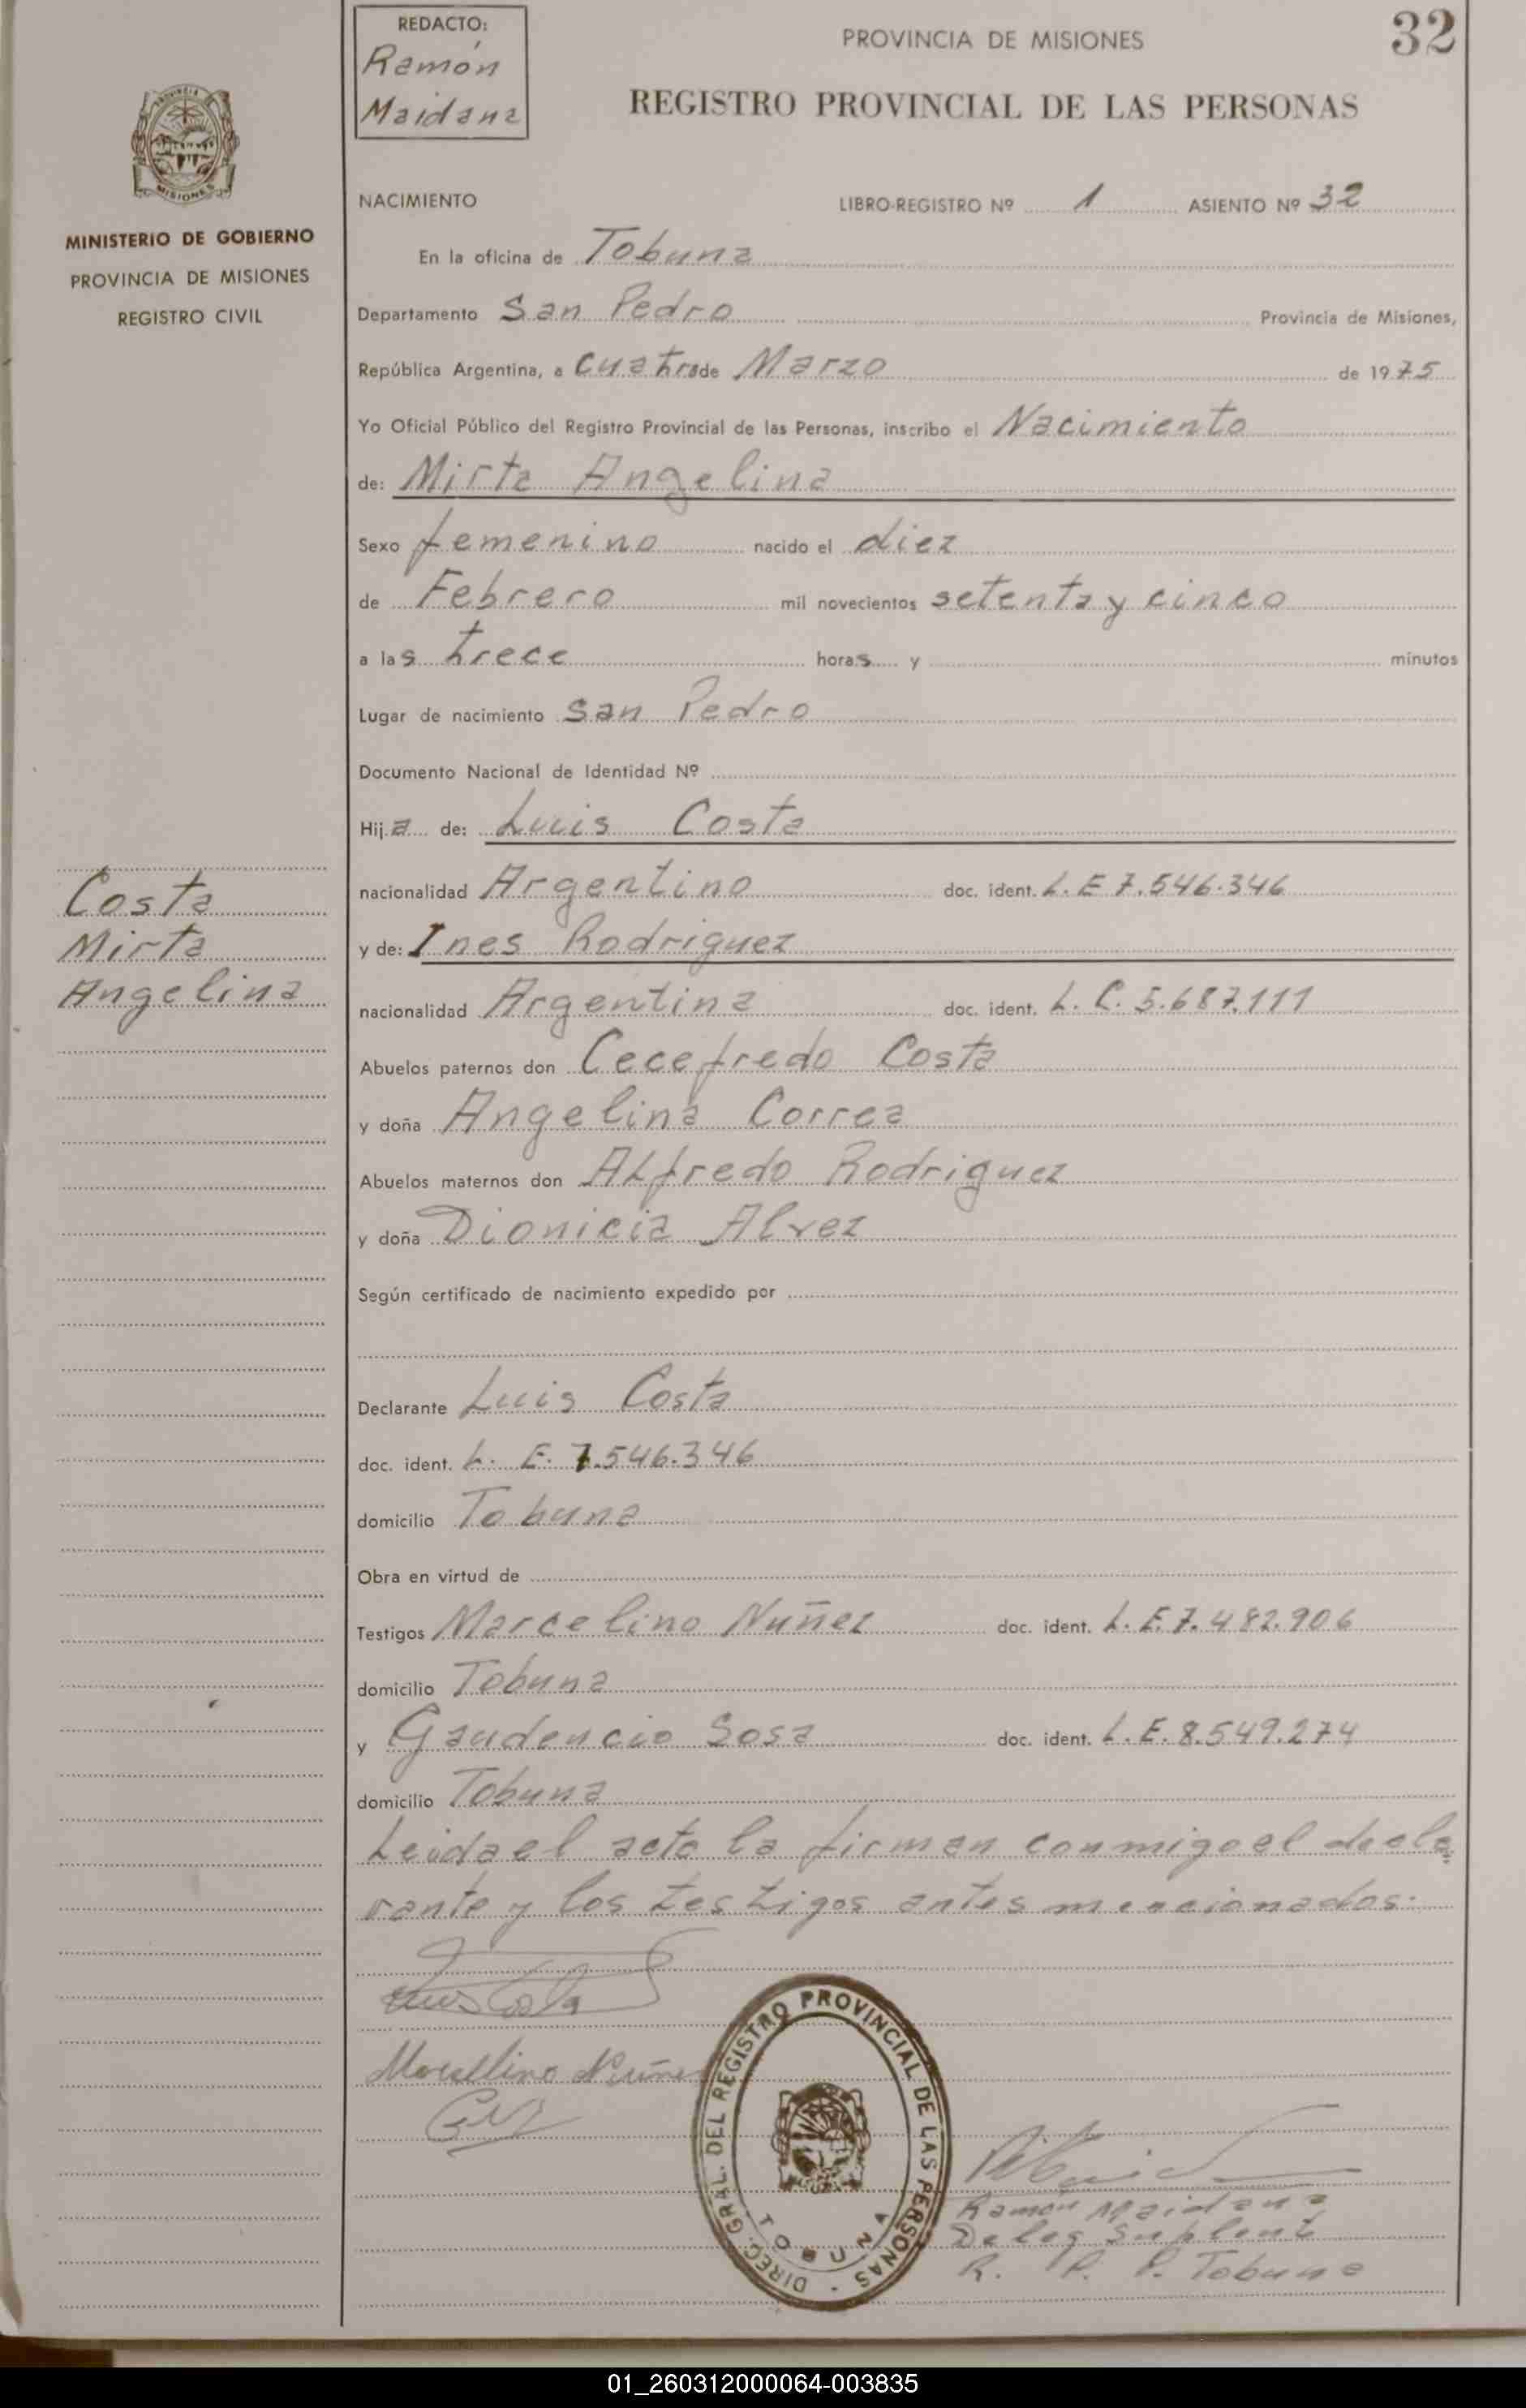 REDACTO:
Ramón
Maidana
PROVINCIA DE MISIONES
32
REGISTRO PROVINCIAL DE LAS PERSONAS
PROVINCIA
MISIONES
MINISTERIO DE GOBIERNO
PROVINCIA DE MISIONES
REGISTRO CIVIL
NACIMIENTO LIBRO-REGISTRO Nº 1 ASIENTO Nº 32
En la oficina de Tobuna
Departamento San Pedro Provincia de Misiones,
República Argentina, a cuatro de Marzo de 1975
Yo Oficial Público del Registro Provincial de las Personas, inscribo el Nacimiento
de: Mirta Angelina
Sexo femenino nacido el diez
de Febrero mil novecientos setenta y cinco
a las trece horas y minutos
Lugar de nacimiento San Pedro
Documento Nacional de Identidad Nº
Hija de: Luis Costa
nacionalidad Argentino doc. ident. L. E 7.546.346
y de: Ines Rodriguez
nacionalidad Argentina doc. ident. L. C. 5.687.111
Costa
Mirta
Angelina
Abuelos paternos don Cecefredo Costa
y doña Angelina Correa
Abuelos maternos don Alfredo Rodriguez
y doña Dionicia Alvez
Según certificado de nacimiento expedido por
Declarante Luis Costa
doc. ident. L. E. 7.546.346
domicilio Tobuna
Obra en virtud de
Testigos Marcelino Nuñez doc. ident. L. E. 7.482.906
domicilio Tobuna
y Gaudencio Sosa doc. ident. L. E. 8.549.274
domicilio Tobuna
Leida el acta la firman conmigo el decla
rante y los testigos antes mencionados.
Luis Costa
Marcellino Nuñez
DIREC. GRAL. DEL REGISTRO PROVINCIAL DE LAS PERSONAS
TOBUNA
Ramón Maidana
Deleg Suplent
R. P. P. Tobuna
01_260312000064-003835